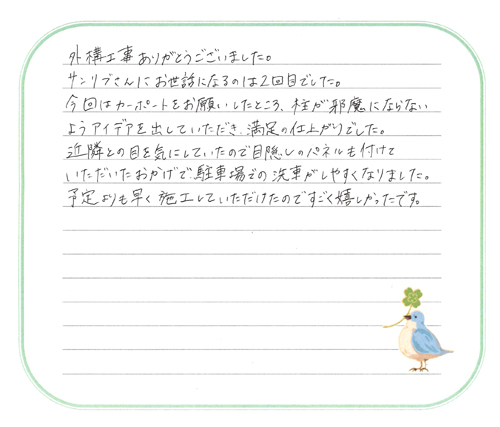 外構工事ありがとうございました。
サンリブさんにお世話になるのは2回目でした。
今回はカーポートをお願いしたところ、柱が邪魔にならない
ようアイデアを出していただき、満足の仕上がりでした。
近隣との目を気にしていたので目隠しのパネルも付けて
いただいたおかげで、駐車場での洗車がしやすくなりました。
予定よりも早く施工していただけたのですごく嬉しかったです。